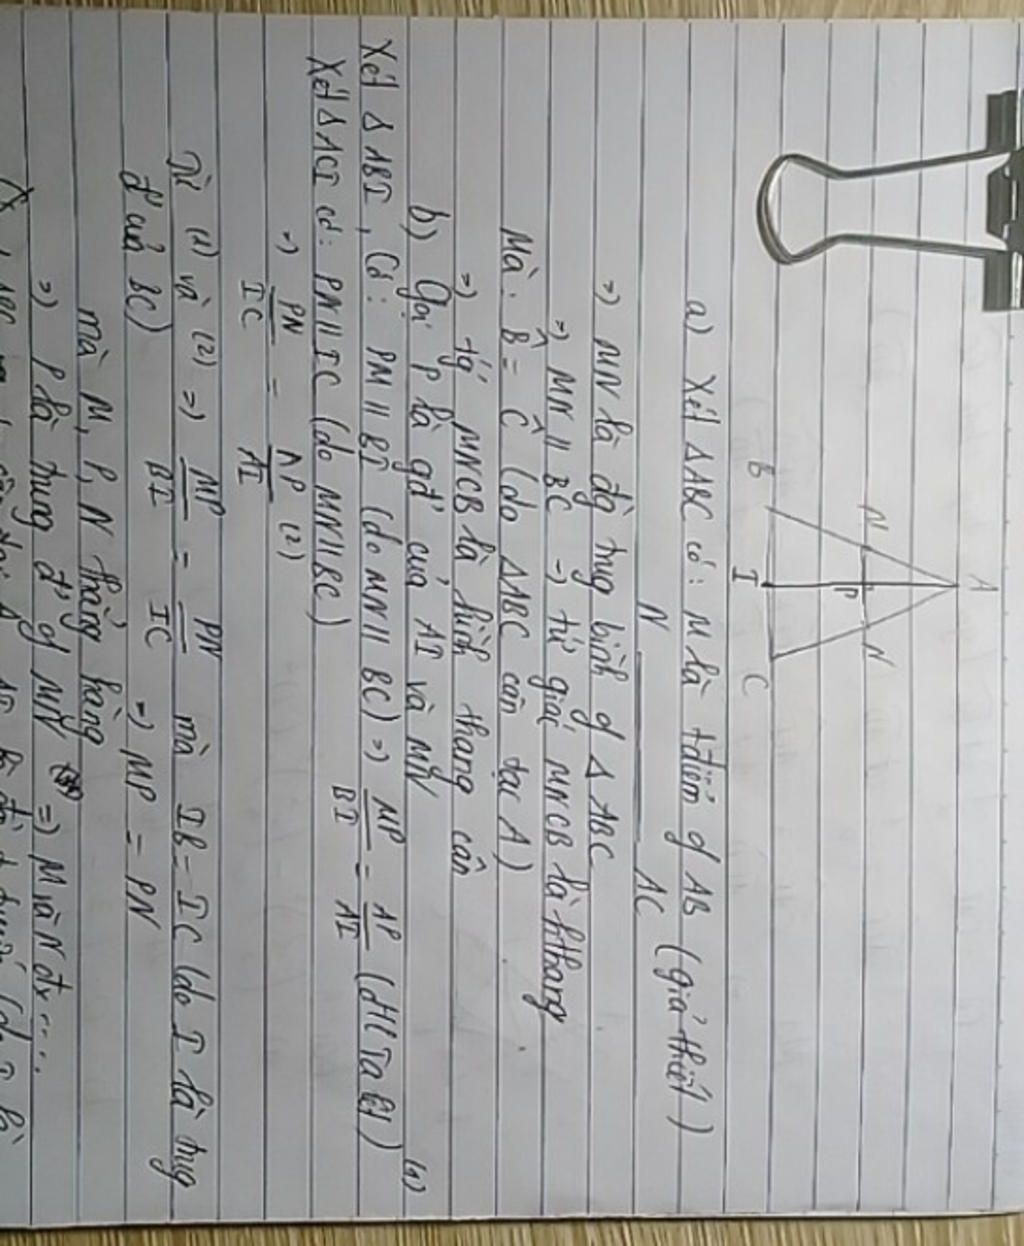 A
M
N
P
B
I
C
a) Xét ΔABC có: M là tđiểm of AB (giả thiết)
N ——— AC
=) MN là đg trug bình of Δ ABC
=) MN // BC -) tứ giác MNCB là hthang
Mà: B̂ = Ĉ (do ΔABC cân tại A)
=) tg MNCB là hình thang cân
b) Gọi P là gđ của AI và MN
Xét Δ ABI, Có: PM // BI (do MN // BC) =) MP/BI = AP/AI (đHl Ta lét) (1)
Xét ΔACI có: PN // IC (do MN // BC)
-) PN/IC = AP/AI (2)
Từ (1) và (2) =) MP/BI = PN/IC mà IB = IC (do I là trug
đ' của BC) =) MP = PN
mà M, P, N thẳng hàng
=) P là trung đ' of MN =) M và N đx ....